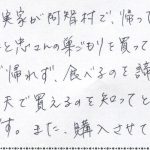 実家が阿智村で、帰って
と忠コトの巣ごもりを買って
ず帰れず、食べるのを諦
天で買えるのを知ってと
す。また、購入させて